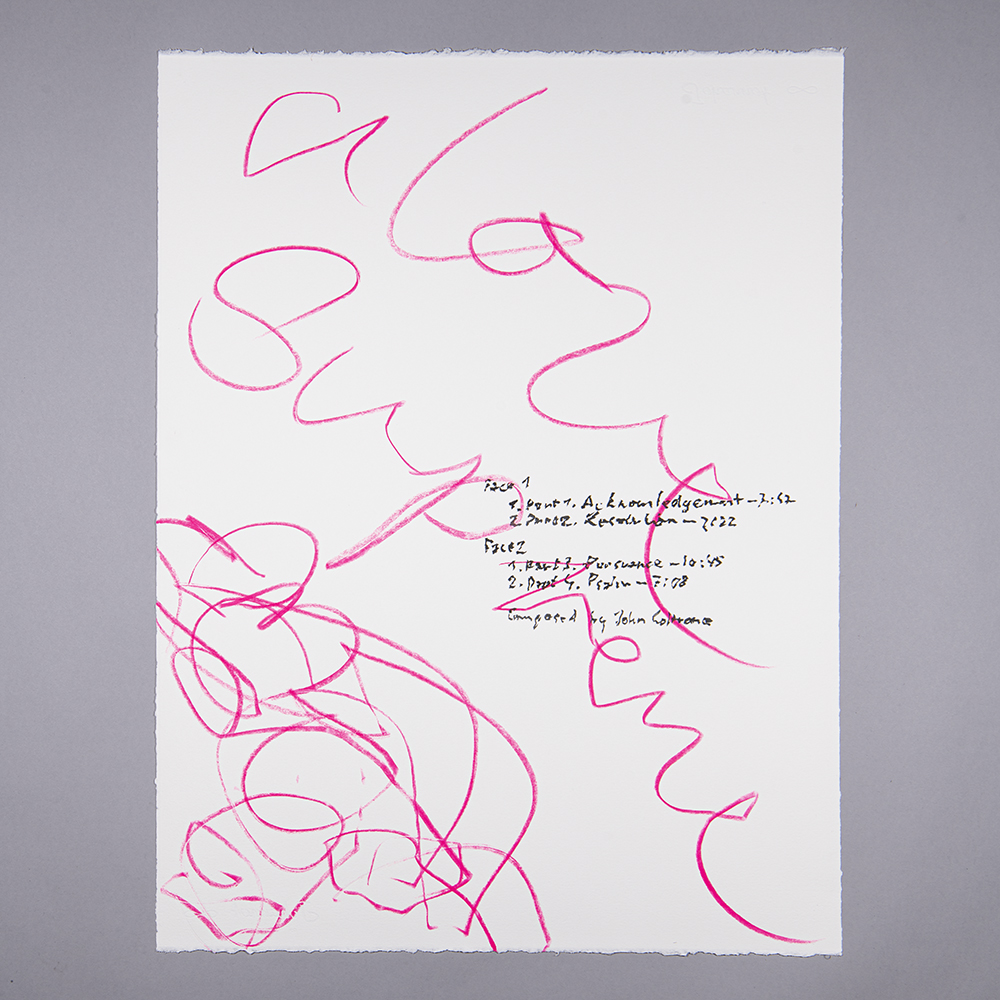 Face 1
1. Part 1. Acknowledgement – 7:42
2. Part 2. Resolution – 7:22
Face 2
1. Part 3. Pursuance – 10:45
2. Part 4. Psalm – 7:08
Composed by John Coltrane